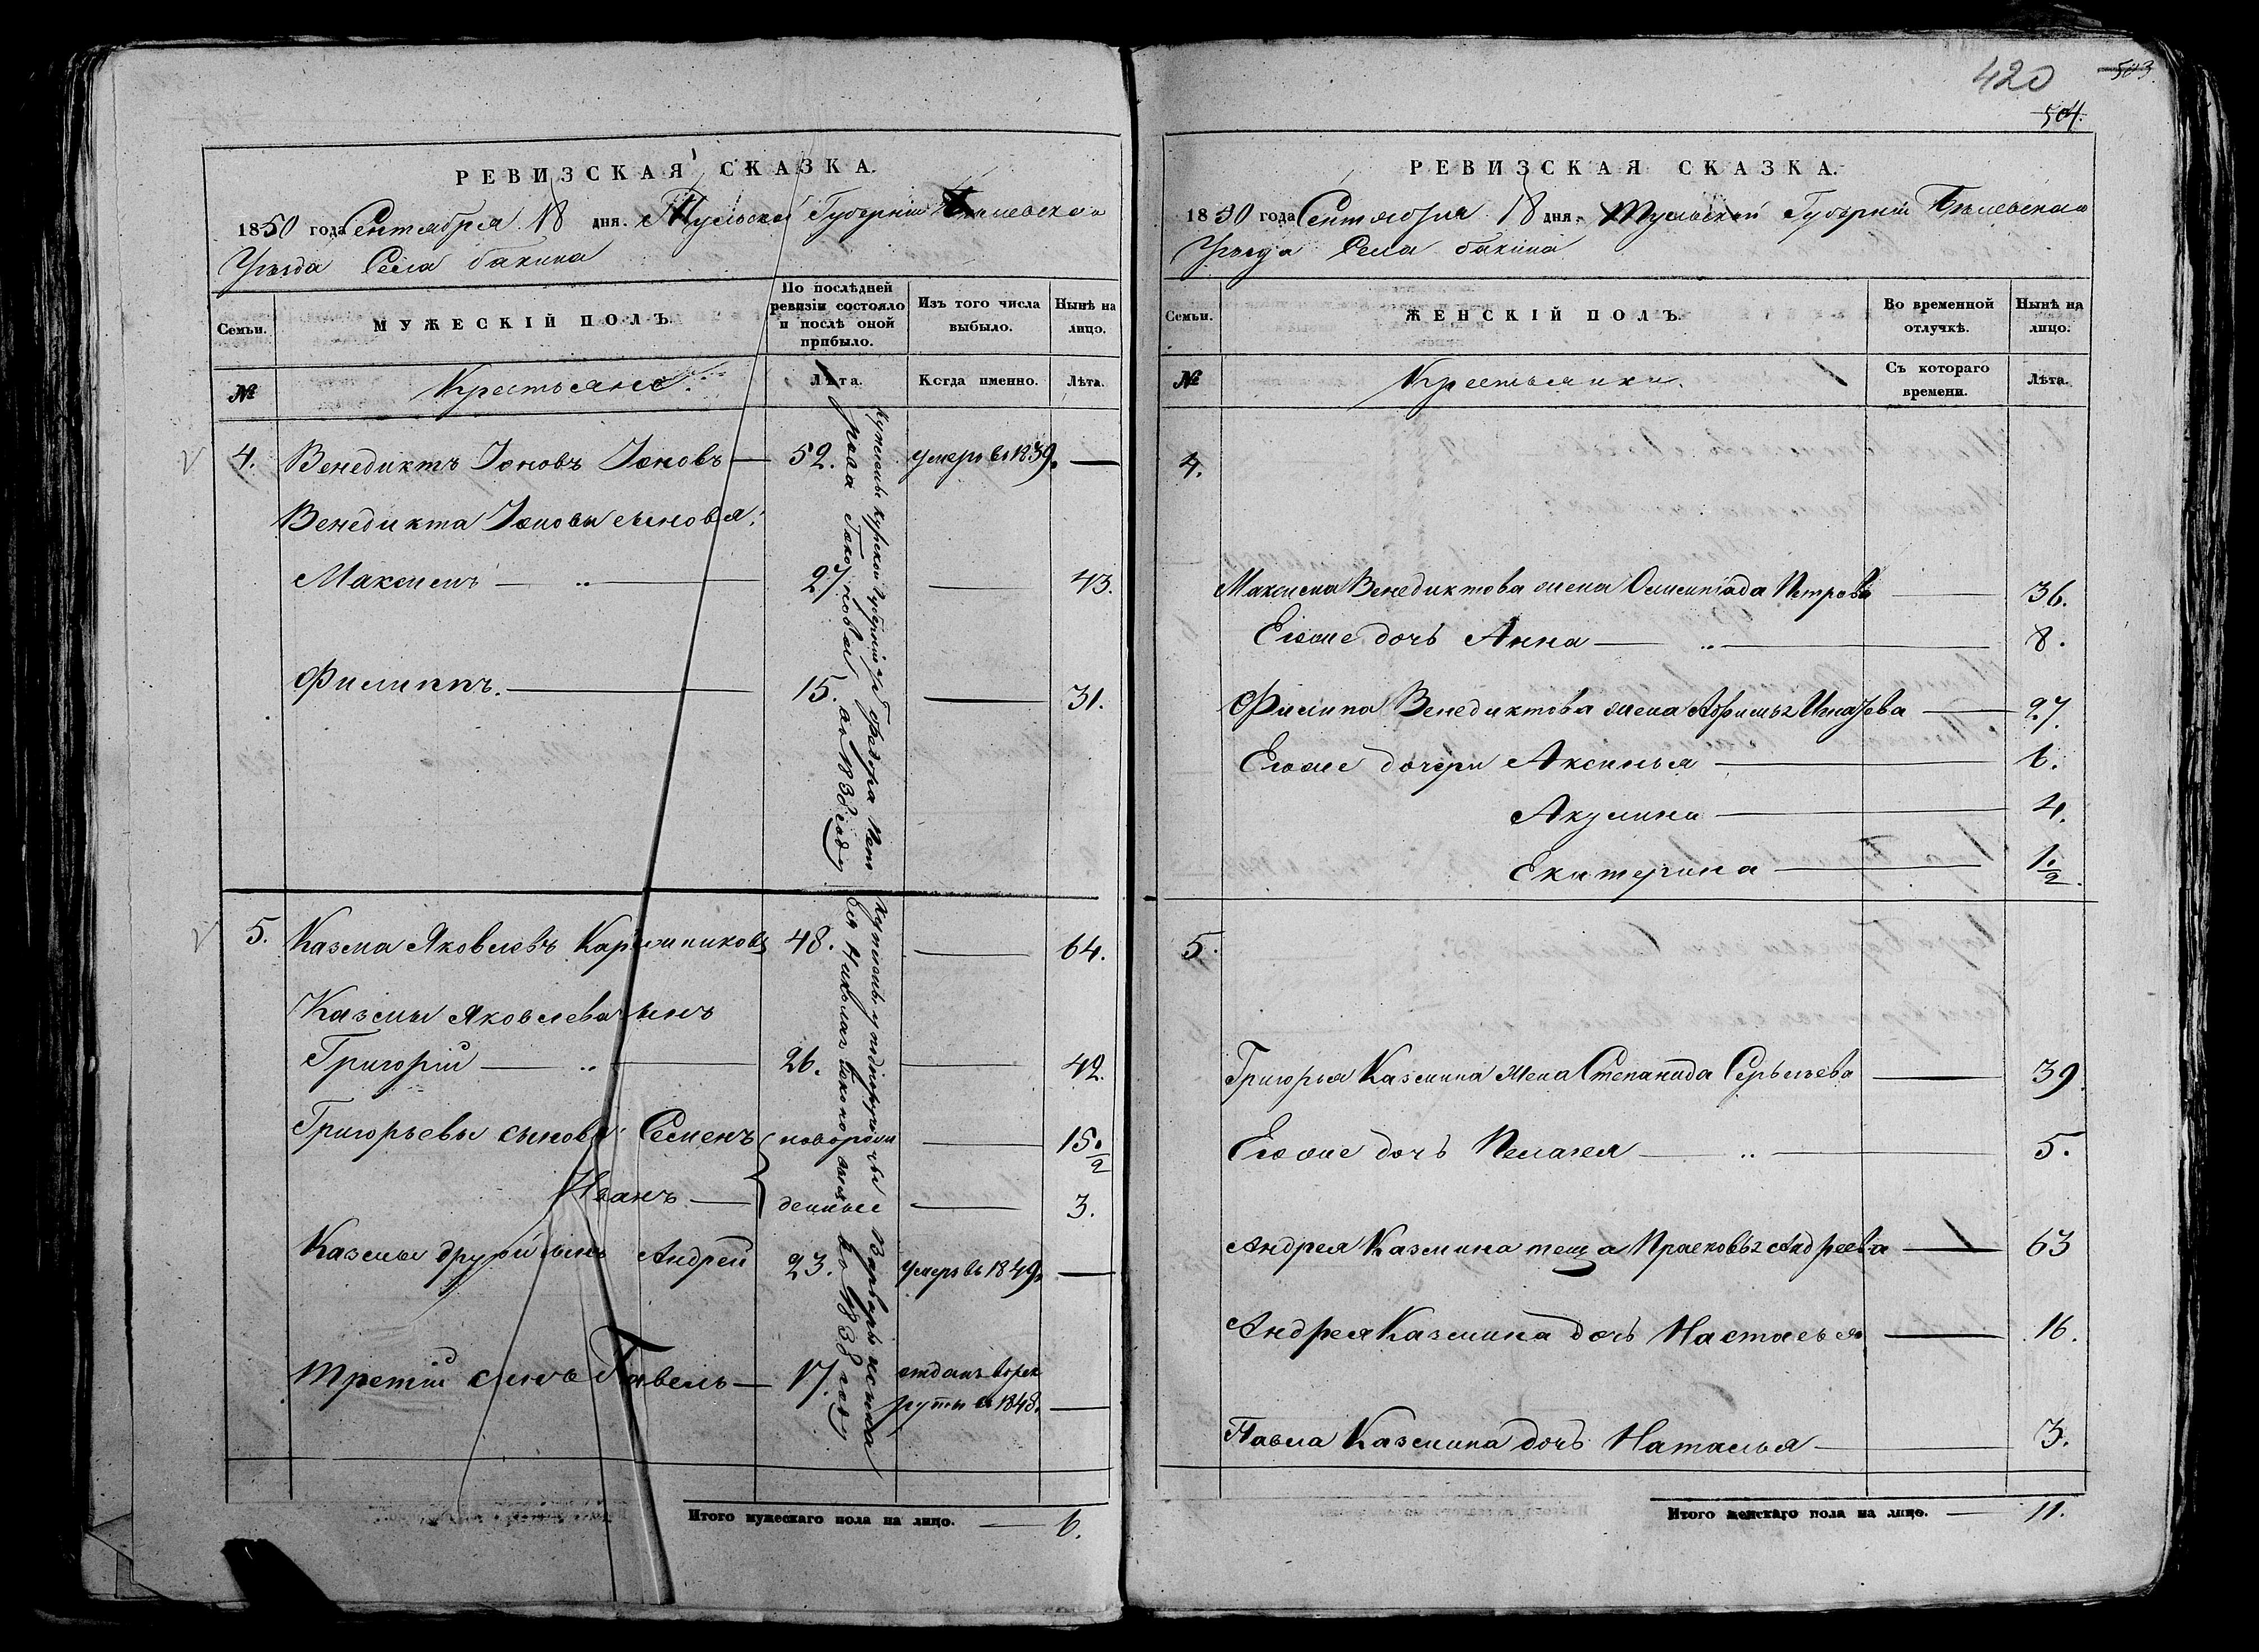 420
503
504.
РЕВИЗСКАЯ СКАЗКА.
1850 года Сентября 18 дня. Тульской Губерніи
Уѣзда Села бакина
Семьи.
МУЖЕСКІЙ ПОЛЪ.
По послѣдней ревизіи состояло и послѣ оной прибыло.
Изъ того числа выбыло.
Нынѣ на лицо.
№
Крестьяне.
Лѣта.
Когда именно.
Лѣта.
4. Венедиктъ Іоновъ Іоновъ — 52. умеръ въ 1839. —
Венедикта Іонова сыновья:
Максимъ — „ — 27. — 43.
Филиппъ. — 15. — 31.
Купленъ Курской Губерніи Федора
въ 1838 году
5. Казма Яковлевъ 48. — 64.
Казмы Яковлева сынъ
Григорій — „ — 26. — 42.
Григорьевы сыновья Семенъ новорож — 15 1/2
Иванъ — денные — 3.
Казмы другой сынъ Андрей 23. умеръ въ 1849. —
третій сынъ Павелъ — 17. отданъ врек
руты в 1848. —
Николая Варвары
въ 1838 году
Итого мужескаго пола на лицо. — 6.
РЕВИЗСКАЯ СКАЗКА.
1850 года Сентября 18 дня. Тульской Губерніи Бѣлевскаго
Уѣзда Села бакина
Семьи.
ЖЕНСКІЙ ПОЛЪ.
Во временной отлучкѣ.
Нынѣ на лицо.
№
Крестьянки.
Съ котораго времени.
Лѣта.
4.
Максима Венедиктова жена Олимпіада Петрова — 36.
Егоже дочь Анна — „ — 8.
Филипа Венедиктова жена — 27.
Егоже дочери Аксинья — 6.
Акулина — 4.
Екатерина — 1 1/2.
5.
Григорья Казмина жена Степанида Сергѣева — 39
Егоже дочь Пелагея — „ — 5.
Андрея Казмина теща Прасковья Андреева — 63
Андрея Казмина дочь Настасья — 16.
Павла Казмина дочь Наталья — 3.
Итого женскаго пола на лицо. — 11.